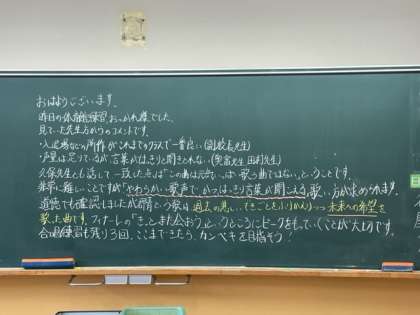 おはようございます。
昨日の体育館練習おつかれ様でした。
見ていた先生方からのコメントです。
・入退場などの所作がこれまでのクラスで一番良い(副校長先生)
・声量は足りているが言葉がはっきりと聞きとれない(奥富先生 田村先生)
久保先生とも話して一致した点は「この曲は元気いっぱい歌う曲ではない」ということです。
非常に難しいことですが「やわらかい歌声で、かつはっきり言葉が聞こえる歌い方が求められます。
道徳でも確認しましたが 情 という歌は過去の悲しいできごとをふりかえり⇒未来への希望を
歌った曲です。フィナーレの「きっとまた会おう」というところにピークをもっていくことが大切です。
合唱練習も残り3回、ここまできたら、カンペキを目指そう!